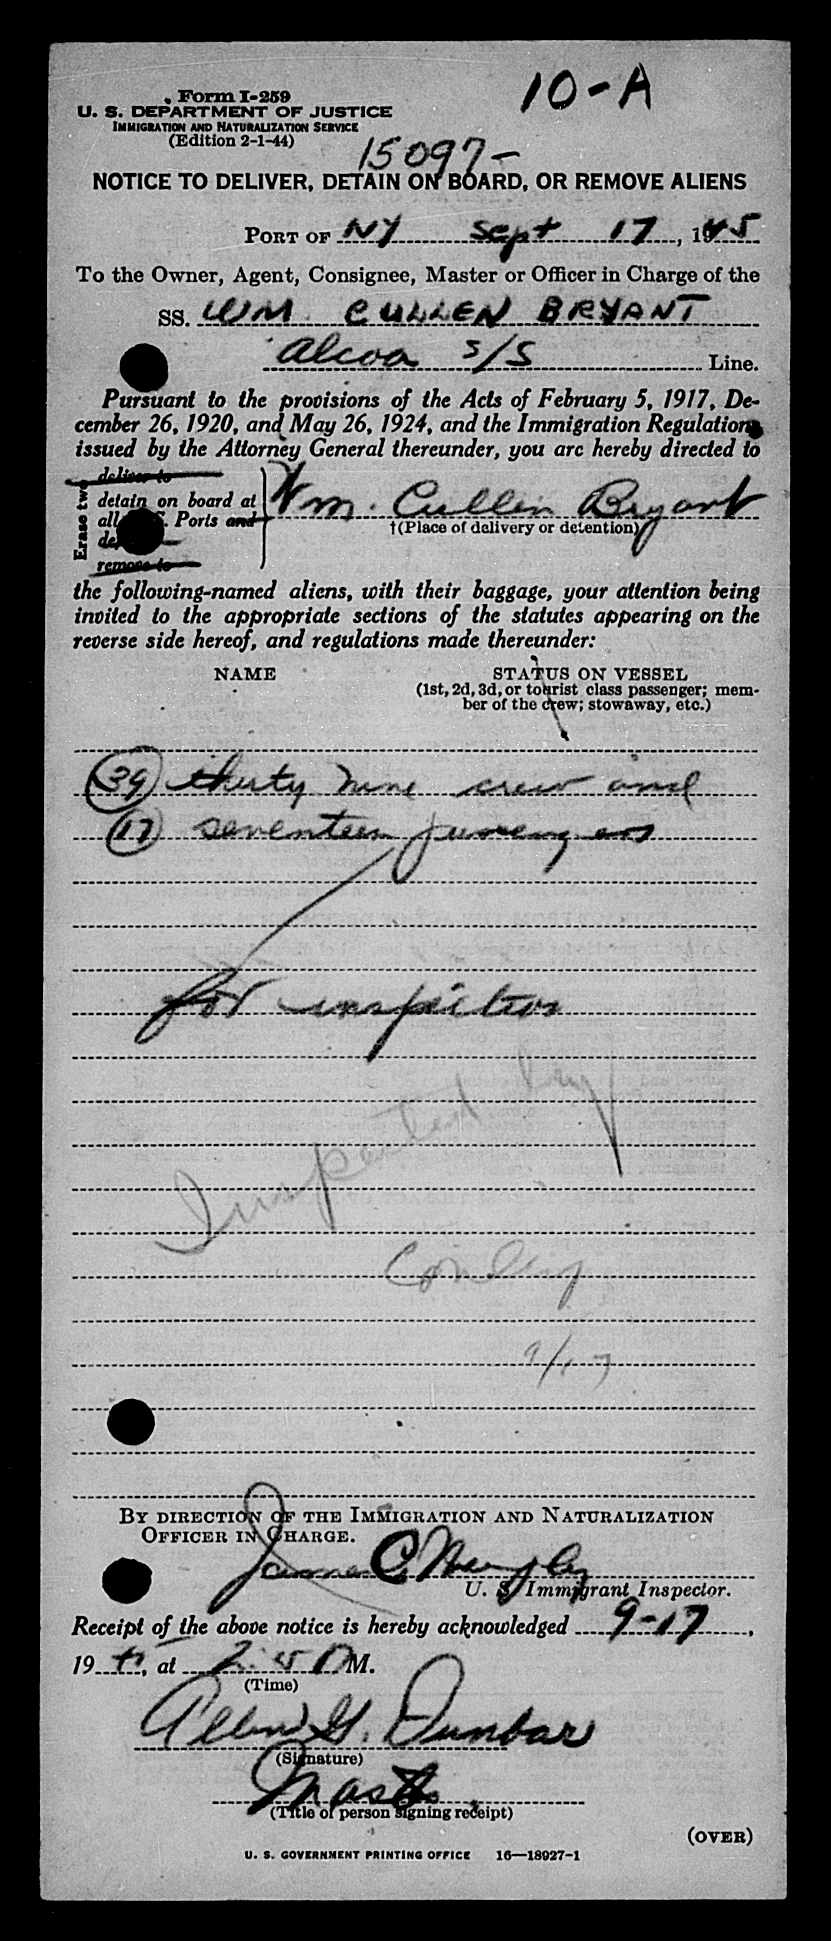 10-A
Form I-259
U. S. DEPARTMENT OF JUSTICE
IMMIGRATION AND NATURALIZATION SERVICE
(Edition 2-1-44)
15097-
NOTICE TO DELIVER, DETAIN ON BOARD, OR REMOVE ALIENS
PORT OF NY Sept 17, 1945
To the Owner, Agent, Consignee, Master or Officer in Charge of the
SS. WM. CULLEN BRYANT
Alcoa S/S Line.
Pursuant to the provisions of the Acts of February 5, 1917, De-
cember 26, 1920, and May 26, 1924, and the Immigration Regulations
issued by the Attorney General thereunder, you are hereby directed to
Erase two
deliver to
detain on board at
all Ports and
remove to
Wm. Cullen Bryant
†(Place of delivery or detention)
the following-named aliens, with their baggage, your attention being
invited to the appropriate sections of the statutes appearing on the
reverse side hereof, and regulations made thereunder:
NAME STATUS ON VESSEL
(1st, 2d, 3d, or tourist class passenger; mem-
ber of the crew; stowaway, etc.)
(39) thirty nine crew and
(17) seventeen passengers
for inspection
Inspected by
9/17
BY DIRECTION OF THE IMMIGRATION AND NATURALIZATION
OFFICER IN CHARGE.
James C.
U. S. Immigrant Inspector.
Receipt of the above notice is hereby acknowledged 9-17,
19 45, at M.
(Time)
Allen G. Dunbar
(Signature)
Master
(Title of person signing receipt)
(OVER)
U. S. GOVERNMENT PRINTING OFFICE 16—18927-1